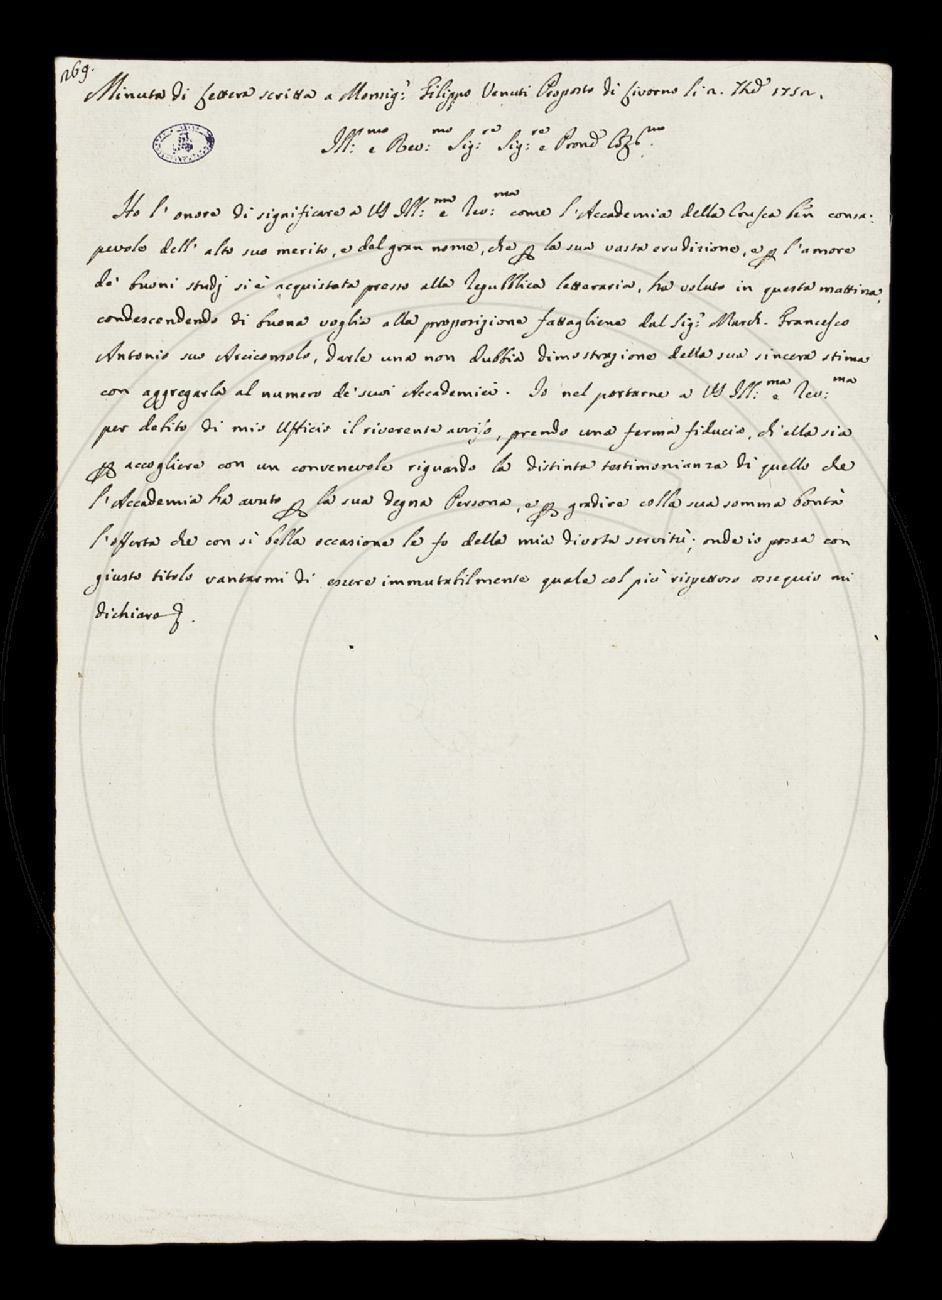 269.
Minuta di Lettera scritta a Monsig.r Filippo Venuti Proposto di Livorno li 2. 1752.
Ill:mo e Rev:mo Sig:re Sig:re e Pron
Ho l'onore di significare a VS Ill:ma e Rev:ma come l'Accademia della Crusca ben consa:
pevole dell'alto suo merito, e del gran nome, che p la sua vasta erudizione, e p l'amore
de' buoni studj si è acquistata presso alla Repubblica letteraria, ha voluto in questa mattina,
condescendendo di buona voglia alla proposizione fattagliene dal Sig.r March. Francesco
Antonio suo Arciconsolo, darle una non dubbia dimostrazione della sua sincera stima
con aggregarla al numero de' suoi Accademici. Io nel portarne a VS Ill:ma e Rev:ma
per debito di mio Uffizio il riverente avviso, prendo una ferma fiducia, ch'ella sia
p accogliere con un convenevole riguardo la distinta testimonianza di quello che
l'Accademia ha avuto p la sua degna Persona, e p gradire colla sua somma bontà
l'offerta che con sì bella occasione le fo della mia divota servitù; onde io possa con
giusto titolo vantarmi di essere immutabilmente quale col più rispettoso ossequio mi
dichiaro